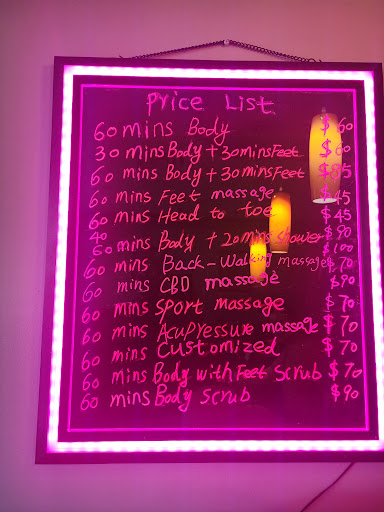 Price List
60 mins Body $ 60
30 mins Body + 30 mins Feet $ 60
60 mins Body + 30 mins Feet $ 85
60 mins Feet massage $ 45
60 mins Head to toe $ 45
40 mins Body + 20 mins shower $ 90
60 $ 100
60 mins Back-Walking massage $ 70
60 mins CBD massage $ 90
60 mins Sport massage $ 70
60 mins Acupressure massage $ 70
60 mins Customized $ 70
60 mins Body with Feet Scrub $ 70
60 mins Body Scrub $ 90